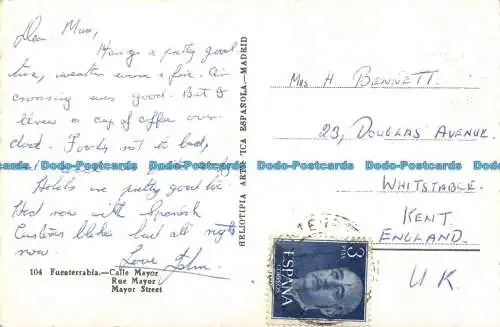 Dear Mum,
Having a pretty good
time, weather warm & fine. Air
crossing was good. But I
threw a cup of coffee over-
Food not to bad,
Hotels are pretty good to.
Had row with Spanish
Customs bloke but all right
now.
Love John.
104 Fuenterrabía.—Calle Mayor
Rue Mayor
Mayor Street
HELIOTIPIA ARTISTICA ESPAÑOLA.—MADRID
MRS H. BENNETT.
23, DOUGLAS AVENUE.
WHITSTABLE.
KENT.
ENGLAND.
U.K.
3
PTA
CORREOS
ESPAÑA
Dodo-Postcards Dodo-Postcards Dodo-Postcards Dodo-Postcards Dodo-Postcards